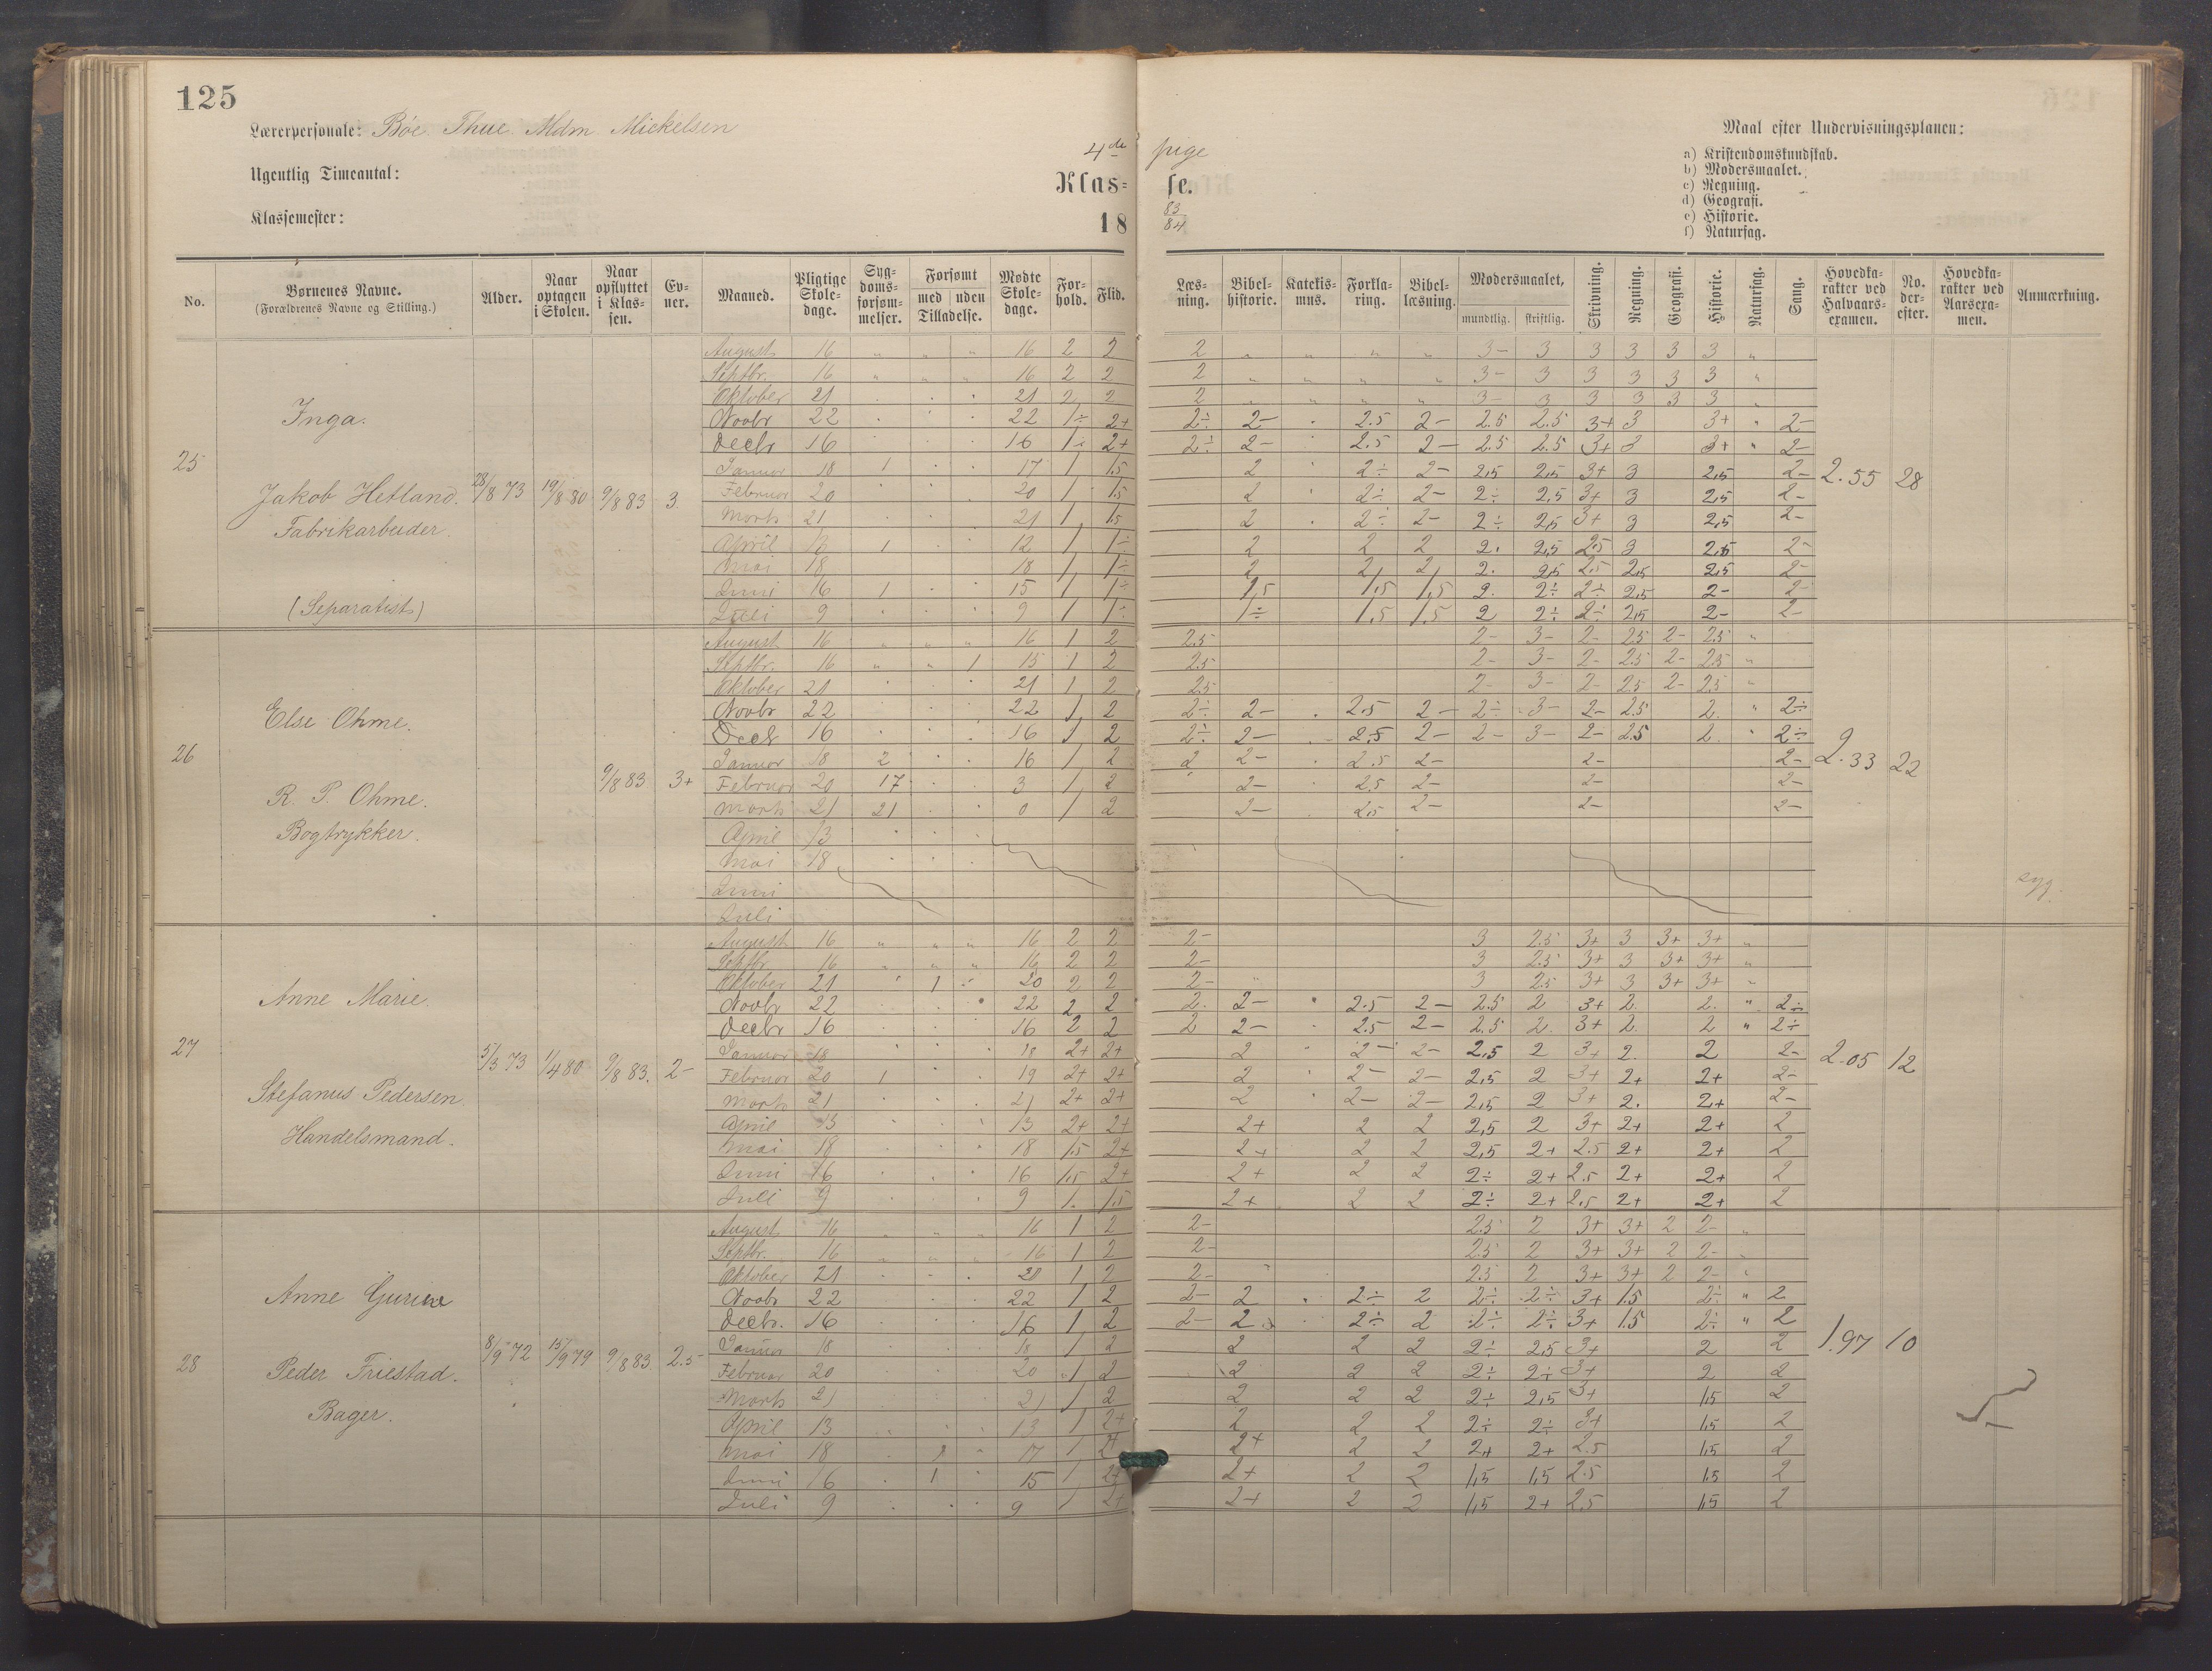 125
Lærerpersonale: Bøe. Thue. Mdm Mickelsen
Ugentlig Timeantal:
Klassemester:
4de pige
Klas= se.
18 83/84
Maal efter Undervisningsplanen:
a) Kristendomskundskab.
b) Modersmaalet.
c) Regning.
d) Geografi.
e) Historie.
f) Naturfag.
No. Børnenes Navne. (Forældrenes Navne og Stilling.) Alder. Naar optagen i Skolen. Naar opflyttet i Klassen. Evner. Maaned. Pligtige Skoledage. Sygdomsforsømmelser. Forsømt med uden Tilladelse. Mødte Skoledage. Forhold. Flid. Læsning. Bibelhistorie. Katekismus. Forklaring. Bibellæsning. Modersmaalet, mundtlig. skriftlig. Skrivning. Regning. Geografi. Historie. Naturfag. Sang. Hovedkarakter ved Halvaarsexamen. No. derefter. Hovedkarakter ved Aarsexamen. Anmærkning.
25 Inga. Jakob Hetland. Fabrikarbeider. (Separatist) 28/8 73 19/8 80 9/8 83 3. 2.55 28
August 16 " " " 16 2 2 2 " " " " 3- 3 3 3 3 3 "
Septbr. 16 " " " 16 2 2 2 " " " " 3- 3 3 3 3 3 "
Oktober 21 21 2 2 2 " " " " 3- 3 3 3 3 3 "
Novbr 22 22 1÷ 2+ 2÷ 2- 2.5 2- 2.5 2.5 3+ 3 3+ " 2-
Decbr 16 16 1÷ 2+ 2÷ 2- 2.5 2- 2.5 2.5 3+ 3 3+ " 2-
Januar 18 1 17 1 1.5 2 2÷ 2- 2,5 2,5 3+ 3 2,5 2-
Februar 20 20 1 1.5 2 2÷ 2- 2÷ 2,5 3+ 3 2,5 2-
Marts 21 21 1 1.5 2 2÷ 2- 2÷ 2,5 3+ 3 2,5 2-
April 13 1 12 1 1÷ 2 2 2 2. 2,5 2.5 3 2,5 2-
Mai 18 18 1 1÷ 2 2 2 2. 2,5 2.5 2,5 2,5 2-
Juni 16 1 15 1 1÷ 1,5 1,5 1,5 2. 2÷ 2÷ 2,5 2- 2-
Juli 9 9 1 1÷ 1÷ 1.5 1.5 2 2÷ 2÷ 2,5 2- 2-
26 Else Ohme. R. P. Ohme. Bogtrykker. 9/8 83 3+ 2.33 22 syg.
August 16 " " " 16 1 2 2.5 2- 3- 2- 2.5 2- 2.5 "
Septbr. 16 " " 1 15 1 2 2.5 2- 3- 2- 2.5 2- 2.5 "
Oktober 21 21 1 2 2.5 2- 3- 2- 2.5 2- 2.5 "
Novbr 22 22 1 2 2÷ 2- 2.5 2- 2÷ 3- 2- 2.5 2. " 2÷
Decbr 16 16 1 2 2÷ 2- 2.5 2- 2- 3- 2- 2.5 2. " 2÷
Januar 18 2 16 1 2 2 2- 2.5 2- 2- 2-
Februar 20 17 3 1 2 2- 2.5 2- 2- 2-
Marts 21 21 0 1 2 2- 2.5 2- 2- 2-
April 13
Mai 18
Juni
Juli
27 Anne Marie. Stefanus Pedersen. Handelsmand. 5/3 73 1/4 80 9/8 83. 2- 2.05 12
August 16 " " " 16 2 2 2- 3 2.5 3+ 3 3+ 3+ "
Septbr 16 " " " 16 2 2 2- 3 2.5 3+ 3 3+ 3+ "
Oktober 21 1 20 2 2 2- 3 2.5 3+ 3 3+ 3+ "
Novbr 22 22 2 2 2. 2- 2.5 2- 2.5 2 3+ 2. 2. " 2÷
Decbr 16 16 2 2 2 2- 2.5 2- 2.5 2. 3+ 2. 2 " 2÷
Januar 18 18 2+ 2+ 2 2- 2- 2,5 2 3+ 2. 2 2-
Februar 20 1 19 2+ 2+ 2 2- 2- 2,5 2 3+ 2+ 2+ 2-
Marts 21 21 2+ 2+ 2 2- 2- 2,5 2 3+ 2. 2+ 2-
April 13 13 2+ 2+ 2+ 2 2 2,5 2 3+ 2+ 2+ 2
Mai 18 18 1.5 2+ 2+ 2 2 2,5 2+ 2.5 2+ 2+ 2
Juni 16 16 1.5 2+ 2+ 2 2 2÷ 2+ 2.5 2+ 2+ 2
Juli 9 9 1. 1.5 2+ 2 2 2÷ 2+ 2.5 2+ 2+ 2
28 Anne Gurine Peder Friestad. Bager. 8/9 72 15/9 79 9/8 83. 2.5 1.97 10
August 16 " " " 16 1 2 2- 2.5 2 3+ 3+ 2 2- "
Septbr. 16 " " " 16 1 2 2- 2.5 2 3+ 3+ 2 2- "
Oktober 21 1 2 2- 2.5 2 3+ 3+ 2 2- "
Novbr 22 22 1 2 2- 2 2÷ 2 2÷ 2÷ 3+ 1.5 2÷ " 2
Decbr. 16 16 1 2 2- 2 2÷ 2 2÷ 2÷ 3+ 1.5 2÷ " 2
Januar 18 18 1 2 2 2 2 2÷ 2,5 3+ 2 2
Februar 20 20 1 2 2 2 2 2÷ 2÷ 3+ 2 2
Marts 21 21 1 2 2 2 2 2÷ 2,5 3+ 1,5 2
April 13 13 1 2+ 2 2 2 2÷ 2÷ 3+ 1,5 2
Mai 18 1 17 1 2+ 2+ 2 2 2+ 2+ 2.5 1,5 2
Juni 16 1 15 1 2+ 2+ 2 2 1,5 1,5 2.5 1.5 2
Juli 9 9 1 2+ 2+ 2 2 1,5 2+ 2,5 1,5 2